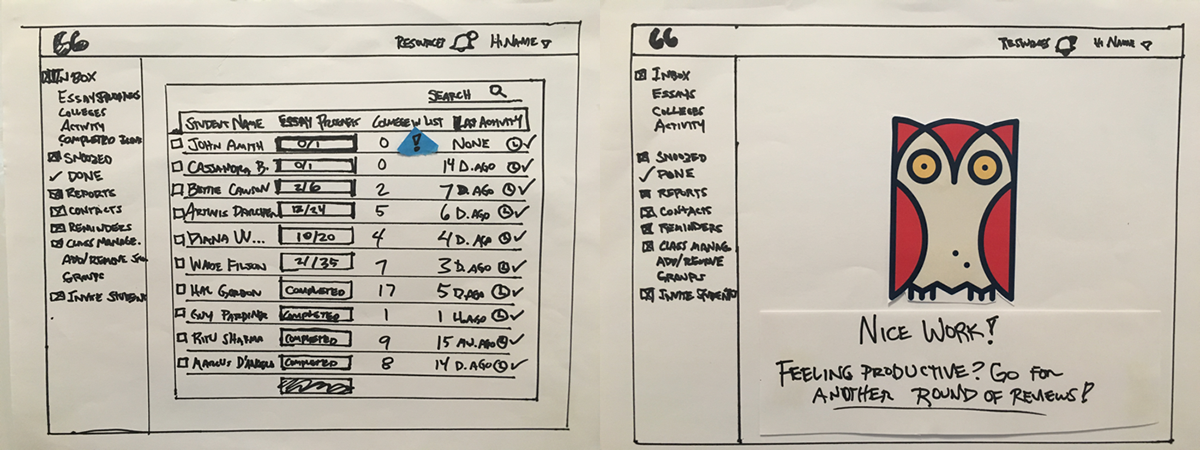 66
RESOURCES
HI NAME
INBOX
ESSAY
COLLEGES
ACTIVITY
COMPLETED
SNOOZED
DONE
REPORTS
CONTACTS
REMINDERS
CLASS MANAGE.
ADD/REMOVE
GROUPS
INVITE STUDENT
SEARCH
STUDENT NAME ESSAY PROGRESS COLLEGE LIST LAST ACTIVITY
JOHN AMITH 0/1 0 ! NONE
CASSANDRA B. 0/1 0 14 D. AGO
BETTIE 2/6 2 7 D. AGO
ARTEMIS 12/24 5 6 D. AGO
DIANA W... 10/20 4 4 D. AGO
WADE FILSON 21/35 7 3 D. AGO
HAL GORDON COMPLETED 17 5 D. AGO
GUY PARDINE COMPLETED 1 1 AGO
RITU SHARMA COMPLETED 9 15 AGO
MARCUS D'ANGELO COMPLETED 8 14 D. AGO
66
RESOURCES
HI NAME
INBOX
ESSAYS
COLLEGES
ACTIVITY
SNOOZED
DONE
REPORTS
CONTACTS
REMINDERS
CLASS MANAG.
ADD/REMOVE
GROUPS
INVITE STUDENTS
NICE WORK!
FEELING PRODUCTIVE? GO FOR
ANOTHER ROUND OF REVIEWS!